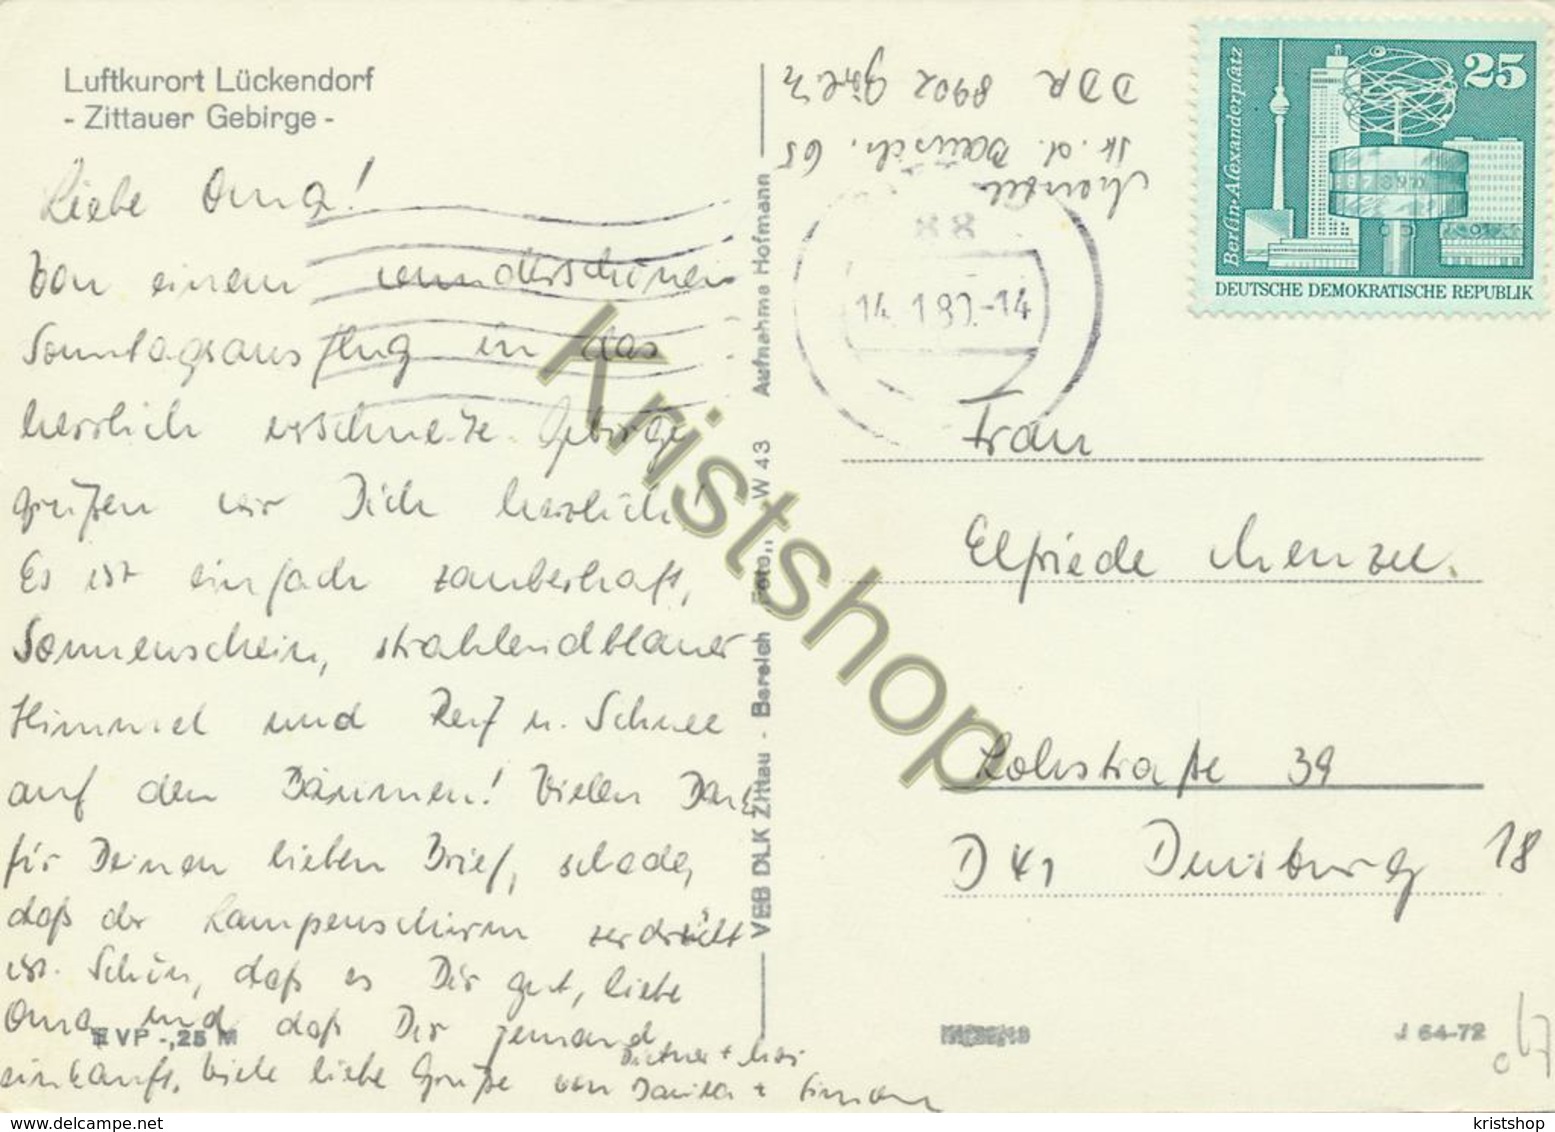 Luftkurort Lückendorf
- Zittauer Gebirge -
Liebe Oma!
Von einem wunderschönen
Sonntagsausflug in das
herrlich verschneite Gebirge
grüßen wir Dich herzlich!
Es ist einfach zauberhaft,
Sonnenschein, strahlendblauer
Himmel und Reif u. Schnee
auf den Bäumen! Vielen Dank
für Deinen lieben Brief, schade,
daß der Lampenschirm zerdrückt
ist. Schön, daß es Dir gut, liebe
Oma und daß Dir jemand
einkauft. Viele liebe Grüße von Danila + Simon
Dietmar +
III VP -,25 M
VEB DLK Zittau - Bereich Foto,, W 43 Aufnahme Hofmann
Menzel
65
DDR 8902 Görlitz
88
14.1.80.-14
Berlin-Alexanderplatz
25
DEUTSCHE DEMOKRATISCHE REPUBLIK
Frau
Elfriede Menzel.
Lohstraße 39
D 41 Duisburg 18
J 64-72
Kristshop
www.delcampe.net
kristshop